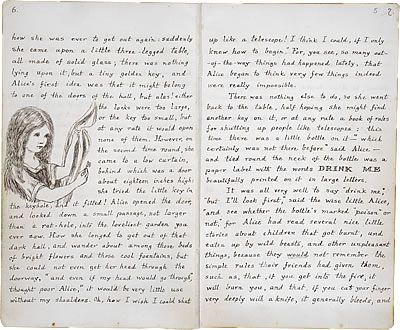 6.
how she was ever to get out again: suddenly
she came upon a little three-legged table,
all made of solid glass; there was nothing
lying upon it, but a tiny golden key, and
Alice's first idea was that it might belong
to one of the doors of the hall, but alas! either
the locks were too large,
or the key too small, but
at any rate it would open
none of them. However, on
the second time round, she
came to a low curtain,
behind which was a door
about eighteen inches high:
she tried the little key in
the keyhole, and it fitted! Alice opened the door,
and looked down a small passage, not larger
than a rat-hole, into the loveliest garden you
ever saw. How she longed to get out of that
dark hall, and wander about among those beds
of bright flowers and those cool fountains, but
she could not even get her head through the
doorway, "and even if my head would go through,"
thought poor Alice, "it would be very little use
without my shoulders. Oh, how I wish I could shut
up like a telescope! I think I could, if I only
knew how to begin." For, you see, so many out-
of-the-way things had happened lately, that
Alice began to think very few things indeed
were really impossible.
There was nothing else to do, so she went
back to the table, half hoping she might find
another key on it, or at any rate a book of rules
for shutting up people like telescopes: this
time there was a little bottle on it — "which
certainly was not there before" said Alice —
and tied round the neck of the bottle was a
paper label with the words DRINK ME
beautifully printed on it in large letters.
It was all very well to say "drink me,"
"but I'll look first," said the wise little Alice,
"and see whether the bottle's marked "poison" or
not," for Alice had read several nice little
stories about children that got burnt, and
eaten up by wild beasts, and other unpleasant
things, because they would not remember the
simple rules their friends had given them,
such as, that, if you get into the fire, it
will burn you, and that, if you cut your finger
very deeply with a knife, it generally bleeds, and